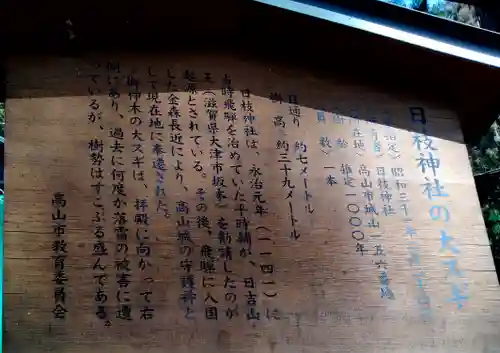 日枝神社の大スギ
日枝神社
高山市城山一五六番地
推定一〇〇〇年
一本
目通り 約七メートル
樹高 約三十九メートル
日枝神社は、永治元年(一一四一)に
当時飛騨を治めていた平時輔が、日吉山
王(滋賀県大津市坂本)を勧請したのが
起源とされている。その後、飛騨に入国
した金森長近により、高山城の守護神と
して現在地に奉遷された。
御神木の大スギは、拝殿に向かって右
側にあり、過去に何度か落雷の被害に遭
っているが、樹勢はすこぶる盛んである。
高山市教育委員会